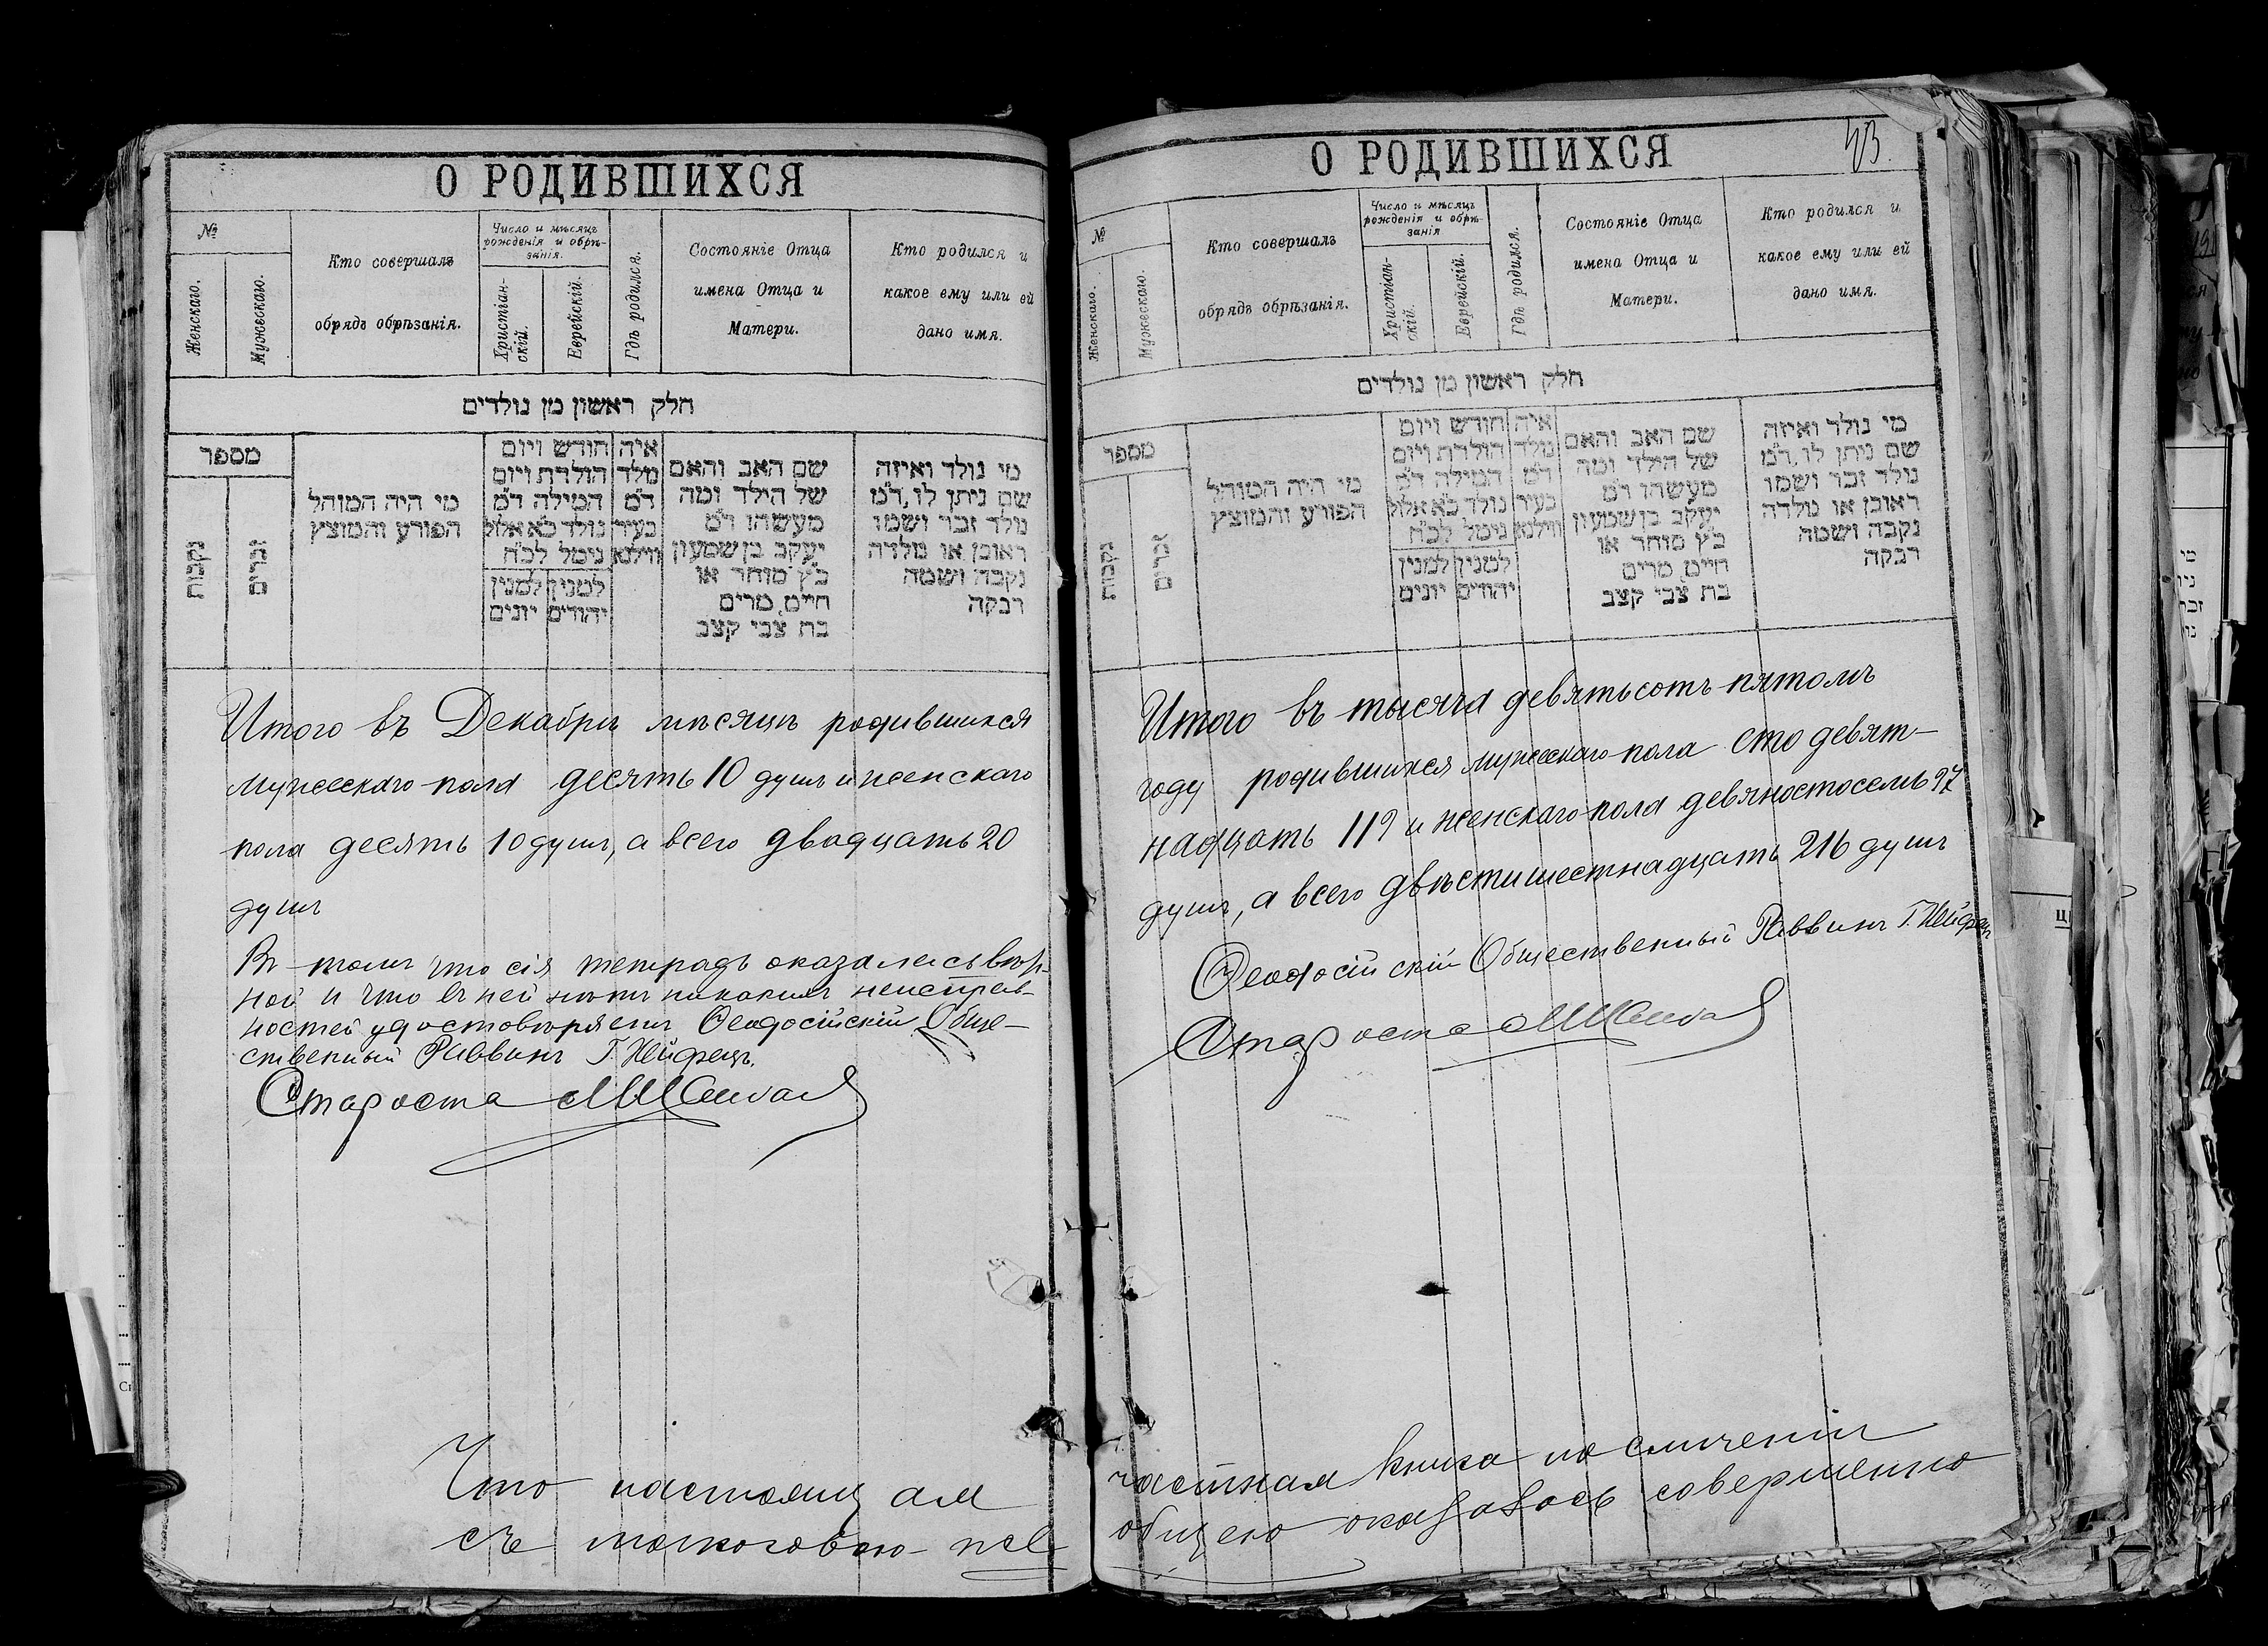 О РОДИВШИХСЯ
№
Женскаго.
Мужескаго.
Кто совершалъ
обрядъ обрѣзанія.
Число и мѣсяцъ
рожденія и обрѣ-
занія.
Христіан-
скій.
Еврейскій.
Гдѣ родился.
Состояніе Отца
имена Отца и
Матери.
Кто родился и
какое ему или ей
дано имя.
חלק ראשון מן נולדים
מספר
נקבות
זכרים
מי היה המוהל
הפורע והמוצץ
חודש ויום
הולדת ויום
המילה ד״מ
נולד כ״א אלול
נימל לכ״ח
למנין יונים
למנין יהודים
איה
נולד
ד״מ
בעיר
ווילנא
שם האב והאם
של הילד ומה
מעשהו ד״מ
יעקב בן שמעון
כ״ץ סוחר או
חיים, מרים
בת צבי קצב
מי נולד ואיזה
שם ניתן לו, ד״מ
נולד זכר ושמו
ראובן או נולדה
נקבה ושמה
רבקה
Итого въ Декабрѣ мѣсяцѣ родившихся
мужескаго пола десять 10 душъ и женскаго
пола десять 10 душъ, а всего двадцать 20
душъ
Въ томъ что сія тетрадь оказалась вѣр-
ной и что въ ней нѣтъ никакихъ неисправ-
ностей удостовѣряетъ Ѳеодосійскій Обще-
ственный Раввинъ Г. Хейфецъ.
Староста
Что настоящая
съ
О РОДИВШИХСЯ
43.
№
Женскаго.
Мужескаго.
Кто совершалъ
обрядъ обрѣзанія.
Число и мѣсяцъ
рожденія и обрѣ-
занія
Христіан-
скій.
Еврейскій.
Гдѣ родился.
Состояніе Отца
имена Отца и
Матери.
Кто родился и
какое ему или ей
дано имя.
חלק ראשון מן נולדים
מספר
נקבות
זכרים
מי היה המוהל
הפורע והמוצץ
חודש ויום
הולדת ויום
המילה ד״מ
נולד כ״א אלול
נימל לכ״ח
למנין יונים
למנין יהודים
איה
נולד
ד״מ
בעיר
ווילנא
שם האב והאם
של הילד ומה
מעשהו ד״מ
יעקב בן שמעון
כ״ץ סוחר או
חיים, מרים
בת צבי קצב
מי נולד ואיזה
שם ניתן לו, ד״מ
נולד זכר ושמו
ראובן או נולדה
נקבה ושמה
רבקה
Итого въ тысяча девятьсотъ пятомъ
году родившихся мужескаго пола сто девят-
надцать 119 и женскаго пола девяностосемь 97
душъ, а всего двѣстишестнадцать 216 душъ
Ѳеодосійскій Общественный Раввинъ Г. Хейфецъ
Староста
частная книга по сличеніи
общею оказалась совершенно